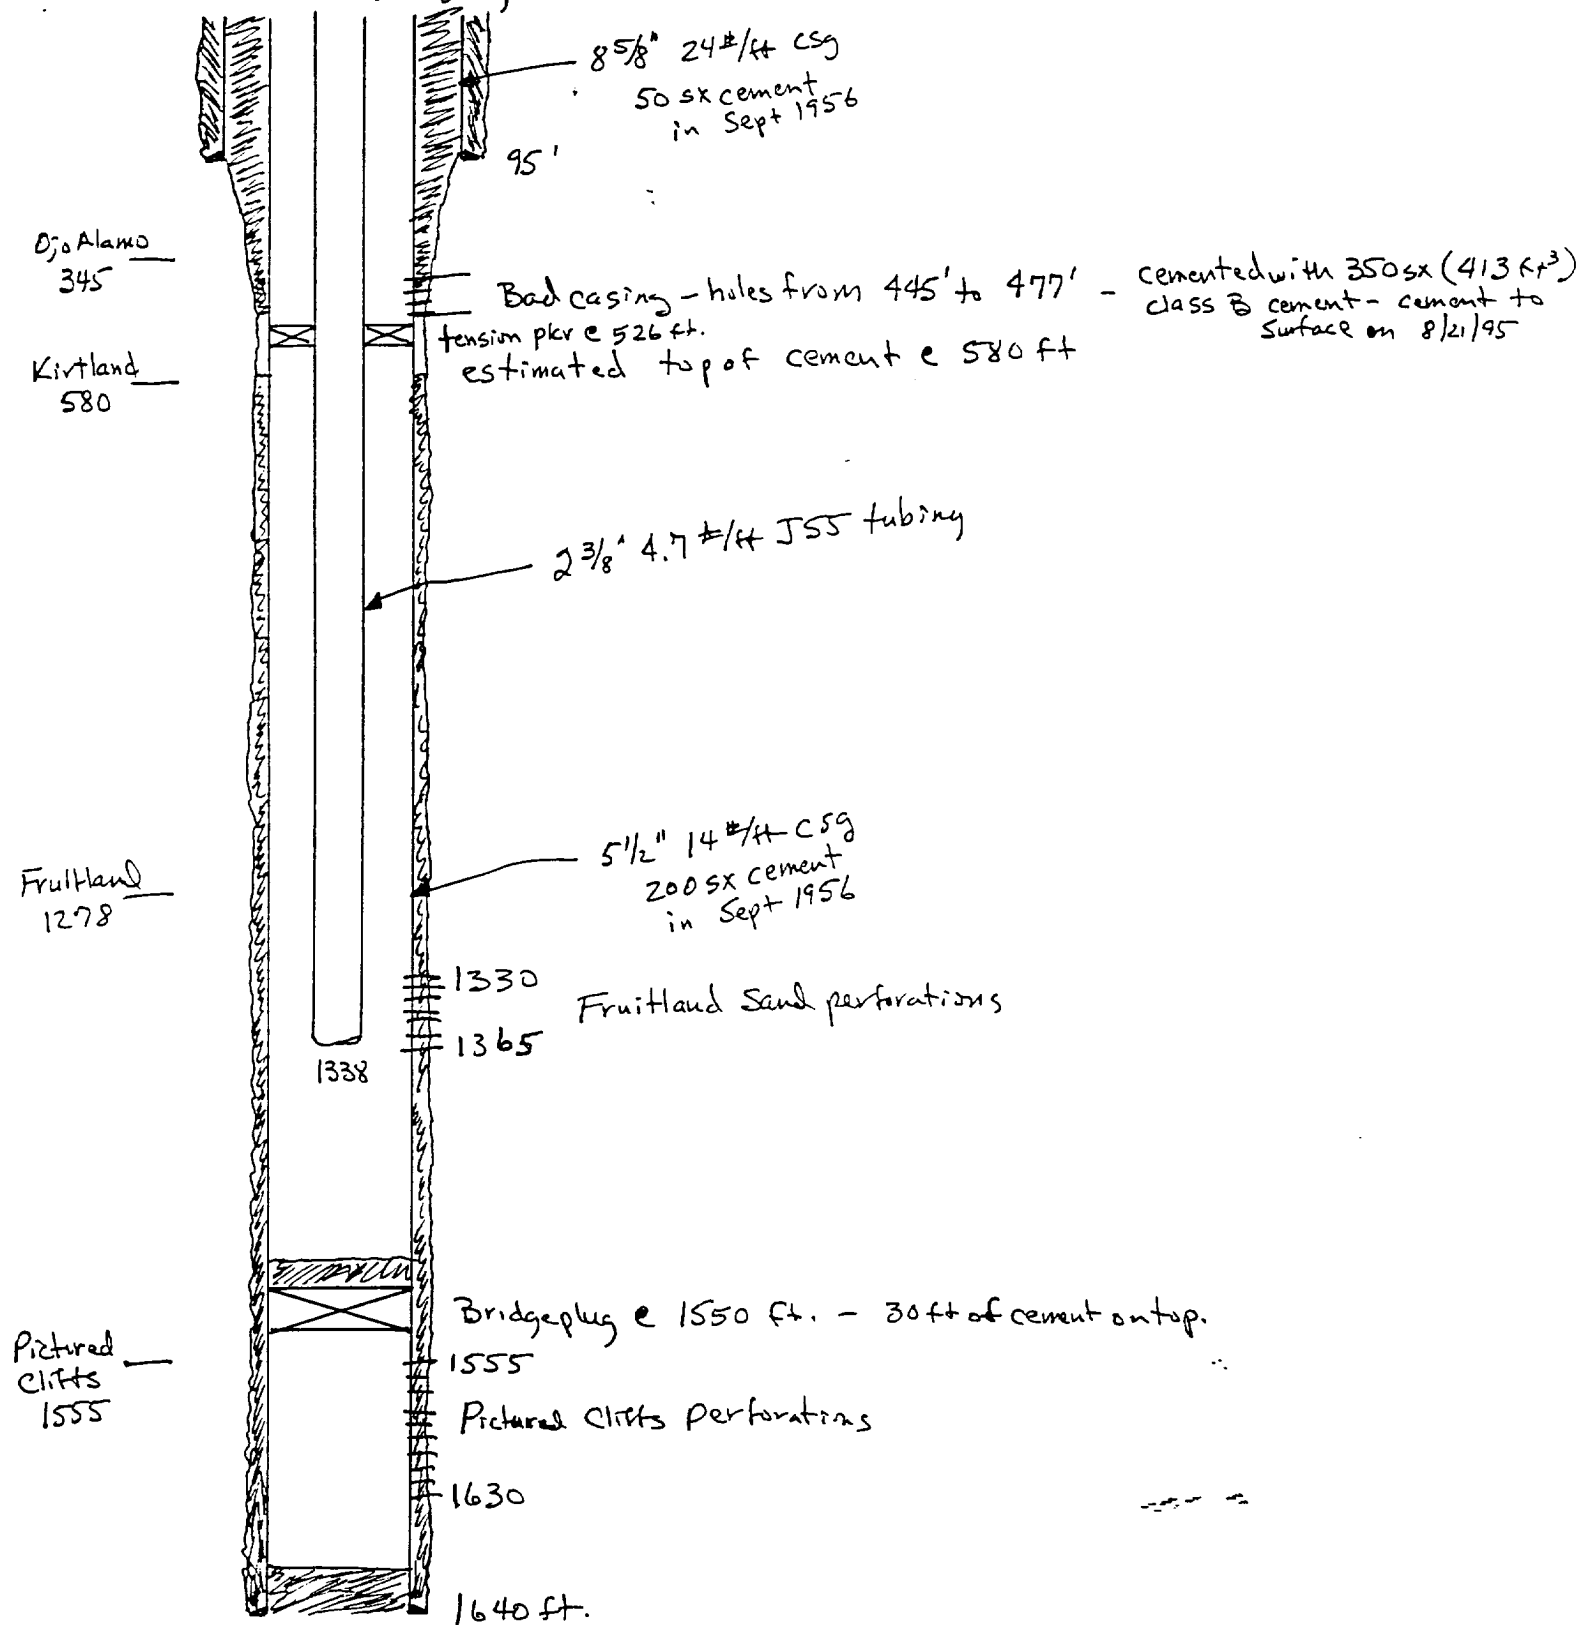 8 5/8" 24#/ft csg
50 sx cement
in Sept 1956
95'
Ojo Alamo
345
Bad casing - holes from 445' to 477' - cemented with 350 sx (413 ft³)
class B cement - cement to
surface on 8/21/95
tension pkr @ 526 ft.
estimated top of cement @ 580 ft
Kirtland
580
2 3/8" 4.7 #/ft J55 tubing
5 1/2" 14 #/ft csg
200 sx cement
in Sept 1956
Fruitland
1278
1330
Fruitland Sand perforations
1365
1338
Bridgeplug @ 1550 ft. - 30 ft of cement on top.
Pictured
Cliffs
1555
1555
Pictured Cliffs Perforations
1630
1640 ft.